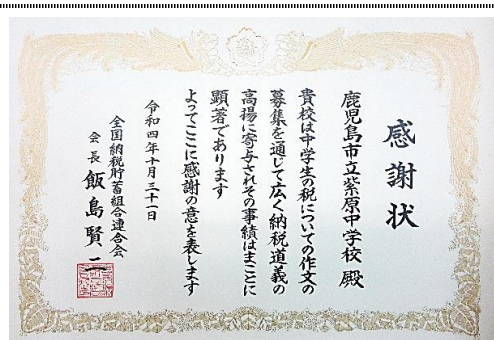 感謝状
鹿児島市立紫原中学校 殿
貴校は中学生の税についての作文の
募集を通じて広く納税道義の
高揚に寄与されその事績はまことに
顕著であります
よってここに感謝の意を表します
令和四年十月三十一日
全国納税貯蓄組合連合会
会長 飯島賢二